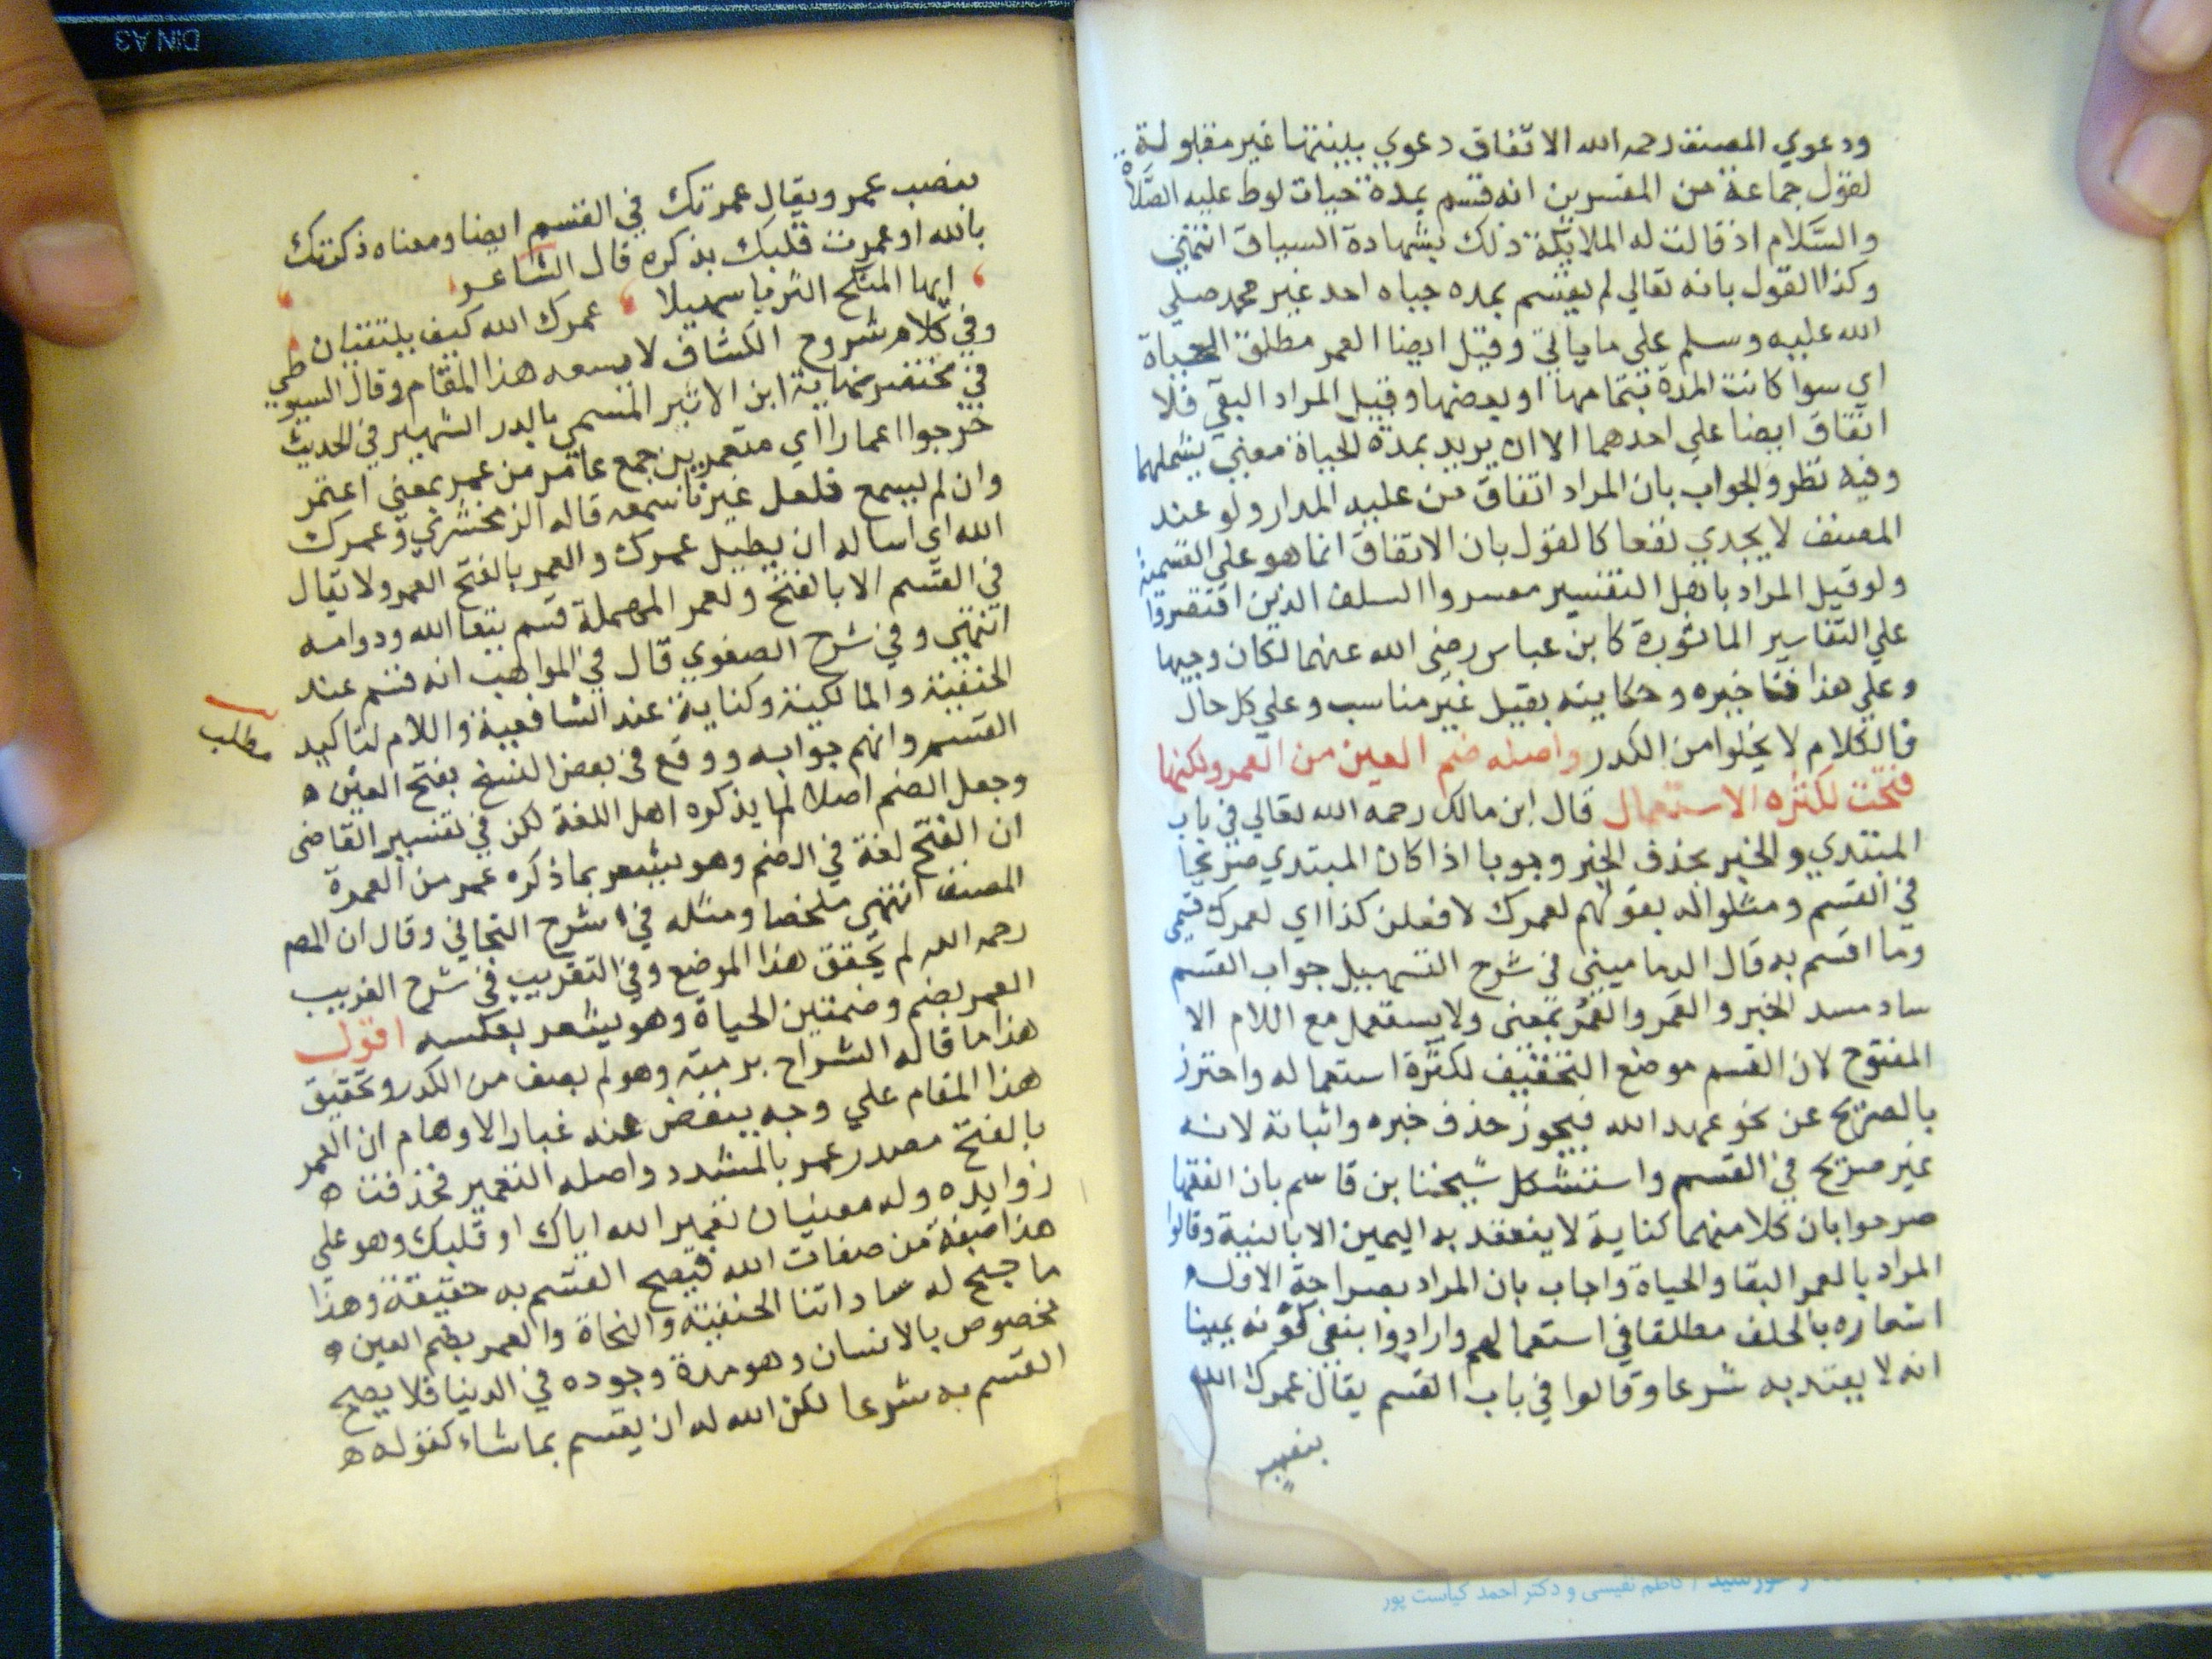 ودعوي المصنف رحمه الله الاتفاق دعوي بينتها غير مقبولة
لقول جماعة من المفسرين انه قسم بمدة حيات لوط عليه الصَّلاة
والسَّلام اذ قالت له الملايكة ذلك بشهادة السياق انتهي
وكذا القول بانه تعالي لم يقسم بمده حياه احد غير محمد صلي
الله عليه وسلم علي ما ياتي وقيل ايضا العمر مطلق الحياة
اي سوا كانت المدة بتمامها او بعضها وقيل المراد البقي فلا
اتفاق ايضا علي احدهما الا ان يريد بمدة الحياة معني يشملهما
وفيه نظر والجواب بان المراد اتفاق من عليه المدار ولو عند
المصنف لا يجدي نفعا كالقول بان الاتفاق انما هو علي القسمية
ولو قيل المراد باهل التفسير مفسروا السلف الذين اقتصروا
علي التفاسير الماثورة كابن عباس رضي الله عنهما لكان وجيها
وعلي هذا فتاخيره وحكايته بقيل غير مناسب وعلي كل حال
فالكلام لا يخلوا من الكدر واصله ضم العين من العمر ولكنها
فتحت لكثره الاستعمال قال ابن مالك رحمه الله تعالي في باب
المبتدي والخبر بحذف الخبر وجوبا اذا كان المبتدي صريحا
في القسم ومثلوا له بقولهم لعمرك لافعلن كذا اي لعمرك قسمي
وما اقسم به قال الدماميني في شرح التسهيل جواب القسم
ساد مسد الخبر والعَمر والعُمر بمعني ولا يستعمل مع اللام الا
المفتوح لان القسم موضع التخفيف لكثرة استعماله واحترز
بالصريح عن نحو عهد الله فيجوز حذف خبره واثباته لانه
غير صريح في القسم واستشكل شيخنا بن قاسم بان الفقها
صرحوا بان كلا منهما كناية لا ينعقد به اليمين الا بالنية وقالوا
المراد بالعمر البقا والحياة واجاب بان المراد بصراحة الاول
اشعاره بالحلف مطلقا في استعمالهم وارادوا بنفي كونه يمينا
انه لا يعتد به شرعا وقالوا في باب القسم يقال عمرك الله
بنصب
بنصب عمر ويقال عمرتك في القسم ايضا ومعناه ذكرتك
بالله او عمرت قلبك بذكره قال الشاعر
ايها المنكح الثريا سهيلا عمرك الله كيف يلتقيان
وفي كلام شروح الكشاف لا يسعه هذا المقام وقال السيوطي
في مختصر نهاية ابن الاثير المسمي بالدر الشهير في الحديث
خرجوا اعمارا اي متعمرين جمع عامر من عمر بمعني اعتمر
وان لم يسمع فلعل غيرنا سمعه قاله الزمخشري وعمرك
الله اي اساله ان يطيل عمرك والعمر بالفتح العمر ولا يقال
في القسم الا بالفتح ولعمر المهملة قسم ببقا الله ودوامه
انتهي وفي شرح الصفوي قال في المواهب انه قسم عند
الحنفية والمالكية وكناية عند الشافعية واللام لتاكيد
مطلب
القسم وانهم جوابه ووقع في بعض النسخ بفتح العين
وجعل الضم اصلا لما يذكره اهل اللغة لكن في تفسير القاضي
ان الفتح لغة في الضم وهو يشعر بما ذكره عمر من العمدة
المصنف انتهي ملخصا ومثله في شرح التجاني وقال ان المص
رحمه الله لم يحقق هذا الموضع وفي التقريب في شرح الغريب
العمر بضم وضمتين الحياة وهو يشعر بعكسه اقول
هذا ما قاله الشراح برمته وهو لم يصف من الكدر وتحقيق
هذا المقام علي وجه ينفض عنه غبار الاوهام ان العمر
بالفتح مصدر عمر بالمشدد واصله التعمير فحذفت
زوايده وله معنيان تعمير الله اياك او قلبك وهو علي
هذا صفة من صفات الله فيصح القسم به حقيقة وهذا
ما جنح له ساداتنا الحنفية والنحاة والعمر بضم العين
مخصوص بالانسان وهو مدة وجوده في الدنيا فلا يصح
القسم به شرعا لكن الله له ان يقسم بما شاء كقوله
DIN A3
کاظم نفیسی و دکتر احمد کیاست پور